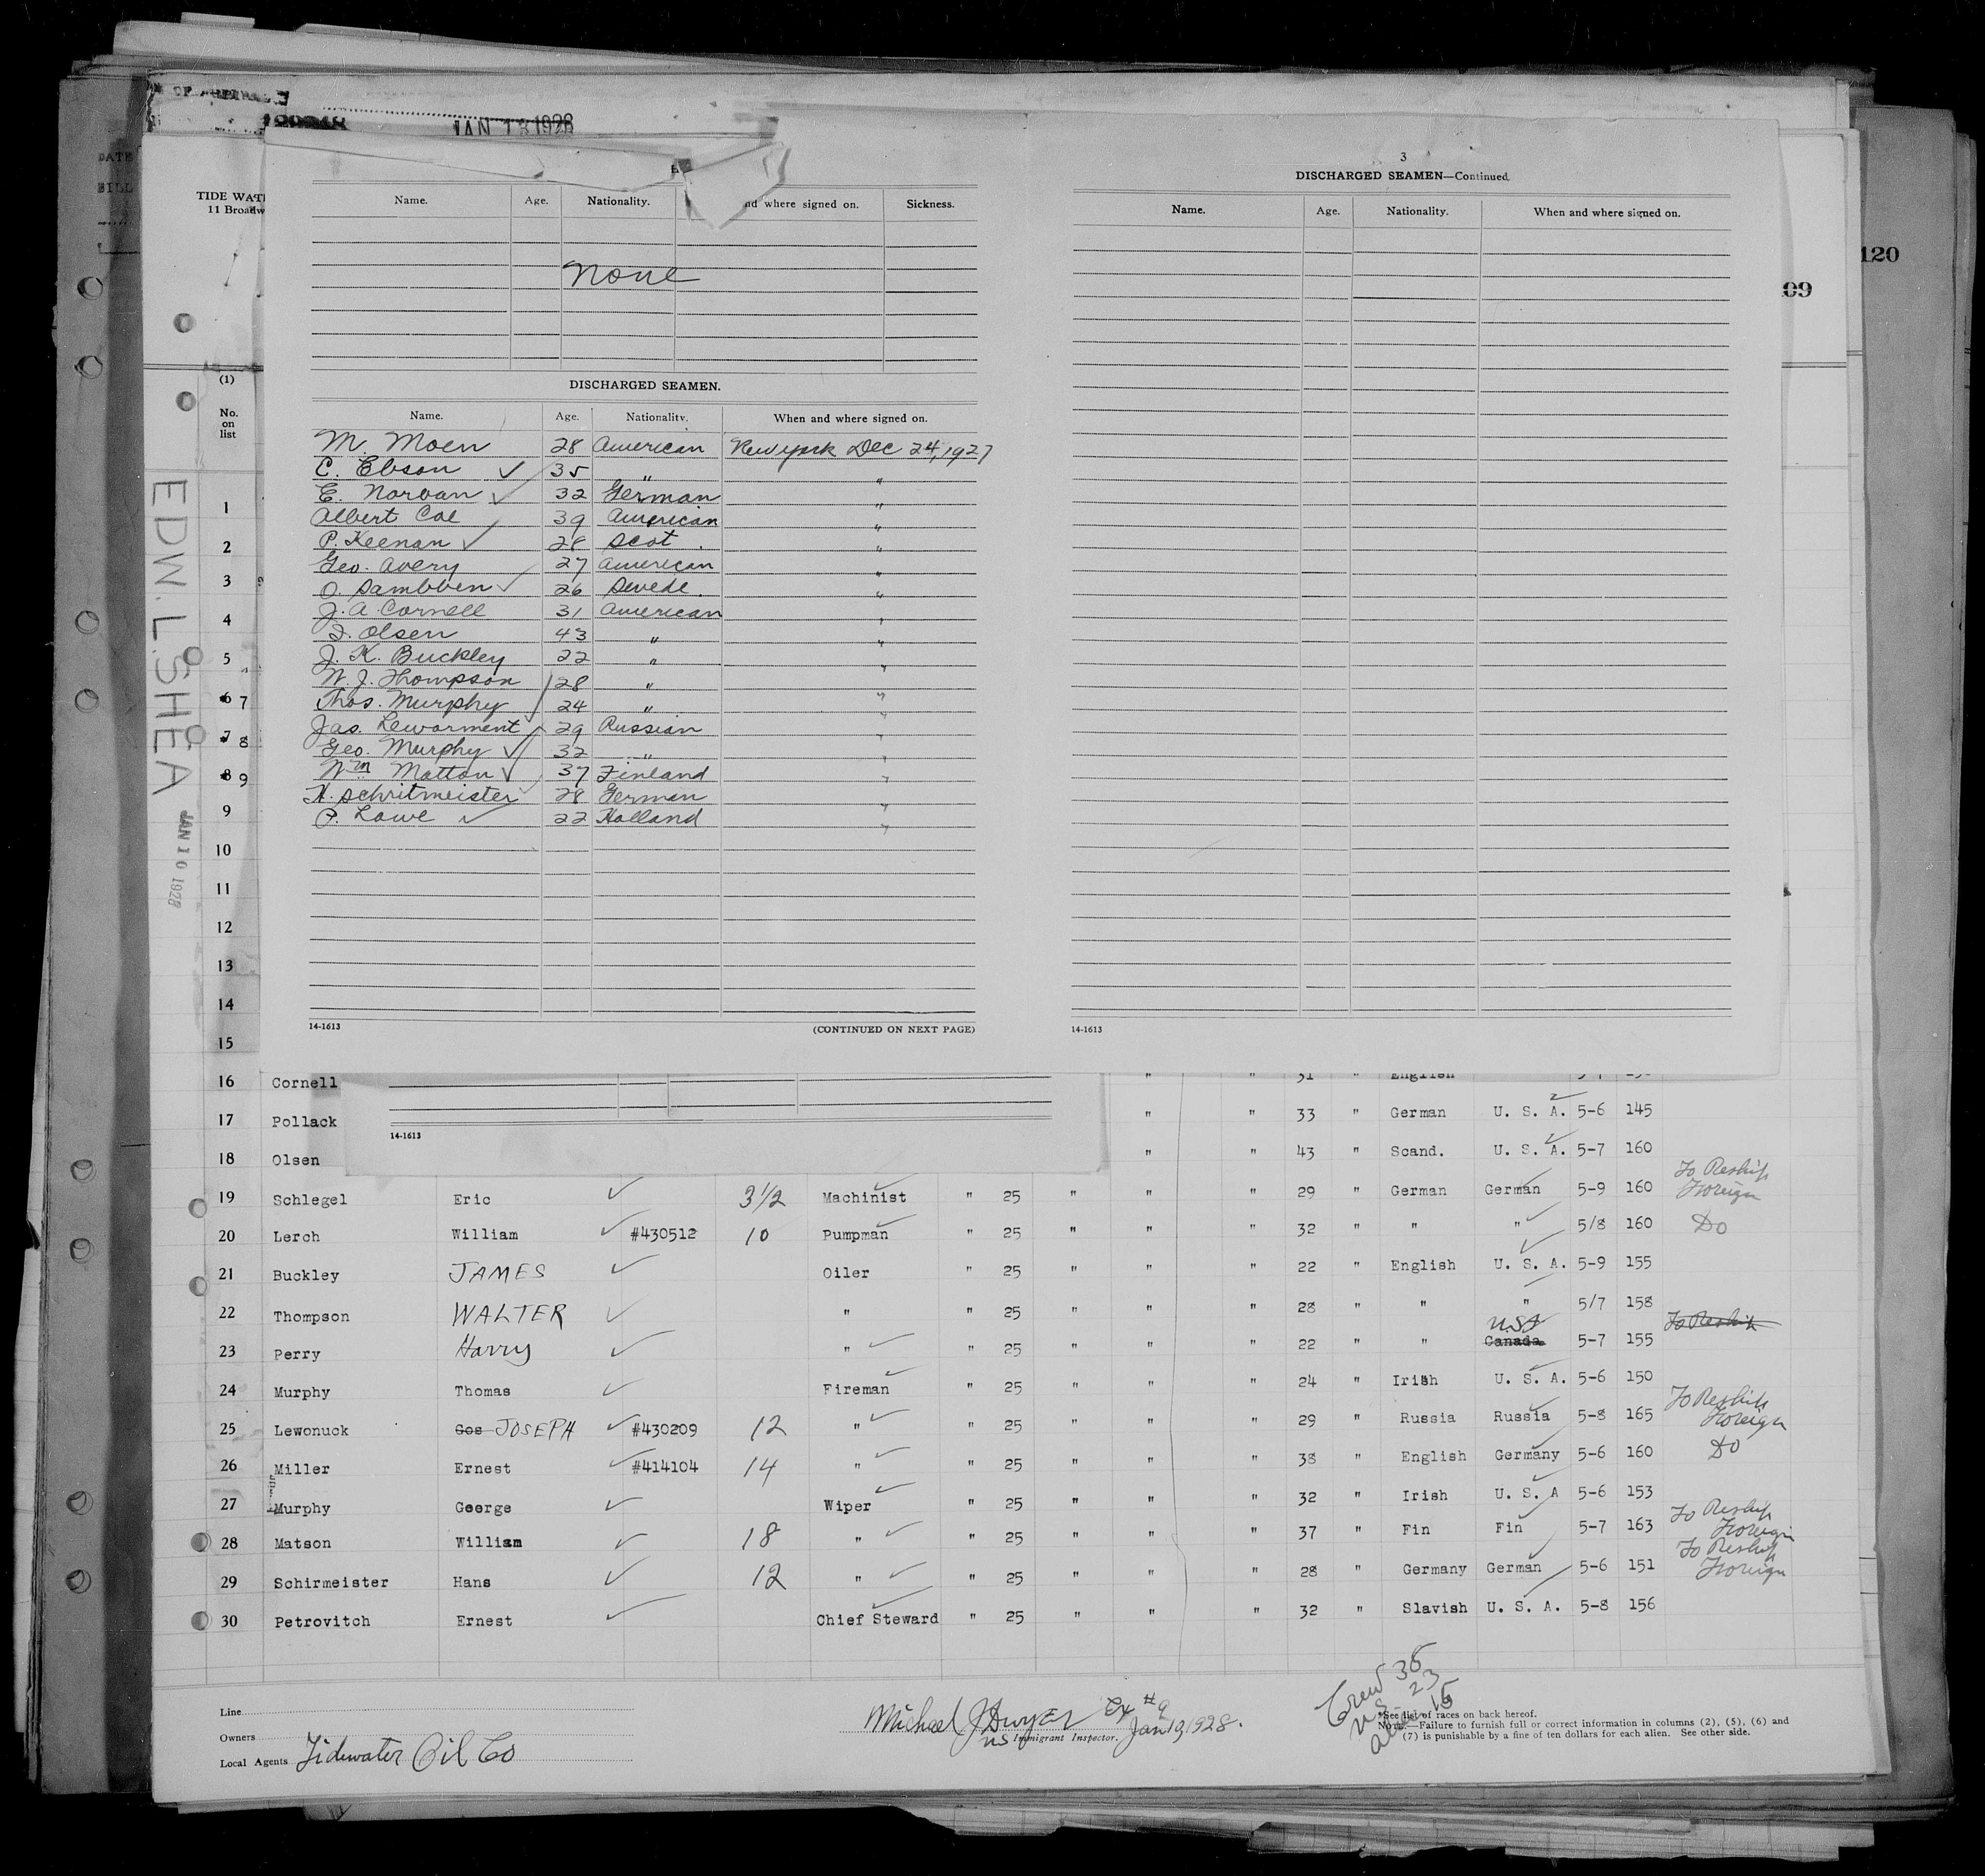 JAN 13 1928
TIDE WAT
11 Broadw
120
09
EDW. L. SHEA
JAN 10 1928
(1)
No.
on
list
Name. Age. Nationality. nd where signed on. Sickness.
None
DISCHARGED SEAMEN.
Name. Age. Nationality. When and where signed on.
M. Moen 28 American New York Dec 24, 1927
C. Ebson ✓ 35 " "
E. Norvan ✓ 32 German "
Albert Coe 39 American "
P. Keenan ✓ 28 Scot. "
Geo. Avery 27 American "
O. Sambben ✓ 26 Swede. "
J. A. Cornell 31 American "
I. Olsen 43 " "
J. K. Buckley 22 " "
W. J. Thompson 28 " "
Thos. Murphy 24 " "
Jas. Lewarment 29 Russian "
Geo. Murphy ✓ 32 " "
Wm Matton ✓ 37 Finland "
H. Schritmeister 28 German "
P. Lowe ✓ 22 Holland "
14-1613 (CONTINUED ON NEXT PAGE)
3
DISCHARGED SEAMEN—Continued.
Name. Age. Nationality. When and where signed on.
14-1613
1
2
3
4
5
6 7
7 8
8 9
9
10
11
12
13
14
15
16 Cornell " " 31 " English
17 Pollack " " 33 " German U. S. A. 5-6 145
14-1613
18 Olsen " " 43 " Scand. U. S. A. 5-7 160
19 Schlegel Eric ✓ 3½ Machinist " 25 " " " 29 " German German 5-9 160 To Reship Foreign
20 Lerch William ✓ #430512 10 Pumpman " 25 " " " 32 " " " 5/8 160 Do
21 Buckley JAMES ✓ Oiler " 25 " " " 22 " English U. S. A. 5-9 155
22 Thompson WALTER ✓ " " 25 " " " 28 " " " 5/7 158
23 Perry Harry ✓ " " 25 " " " 22 " " Canada USA 5-7 155 To Reship
24 Murphy Thomas ✓ Fireman " 25 " " " 24 " Irish U. S. A. 5-6 150
25 Lewonuck Gos JOSEPH ✓ #430209 12 " " 25 " " " 29 " Russia Russia 5-8 165 To Reship Foreign
26 Miller Ernest ✓ #414104 14 " " 25 " " " 38 " English Germany 5-6 160 Do
27 Murphy George ✓ Wiper " 25 " " " 32 " Irish U. S. A 5-6 153
28 Matson William ✓ 18 " " 25 " " " 37 " Fin Fin 5-7 163 To Reship Foreign
29 Schirmeister Hans ✓ 12 " " 25 " " " 28 " Germany German 5-6 151 To Reship Foreign
30 Petrovitch Ernest ✓ Chief Steward " 25 " " " 32 " Slavish U. S. A. 5-8 156
Crew 38
US 23
Alien 15
Line
Owners
Local Agents Tidewater Oil Co
Michael J Dwyer Ex #9
US Immigrant Inspector. Jan 10, 1928.
*See list of races on back hereof.
NOTE.—Failure to furnish full or correct information in columns (2), (5), (6) and
(7) is punishable by a fine of ten dollars for each alien. See other side.